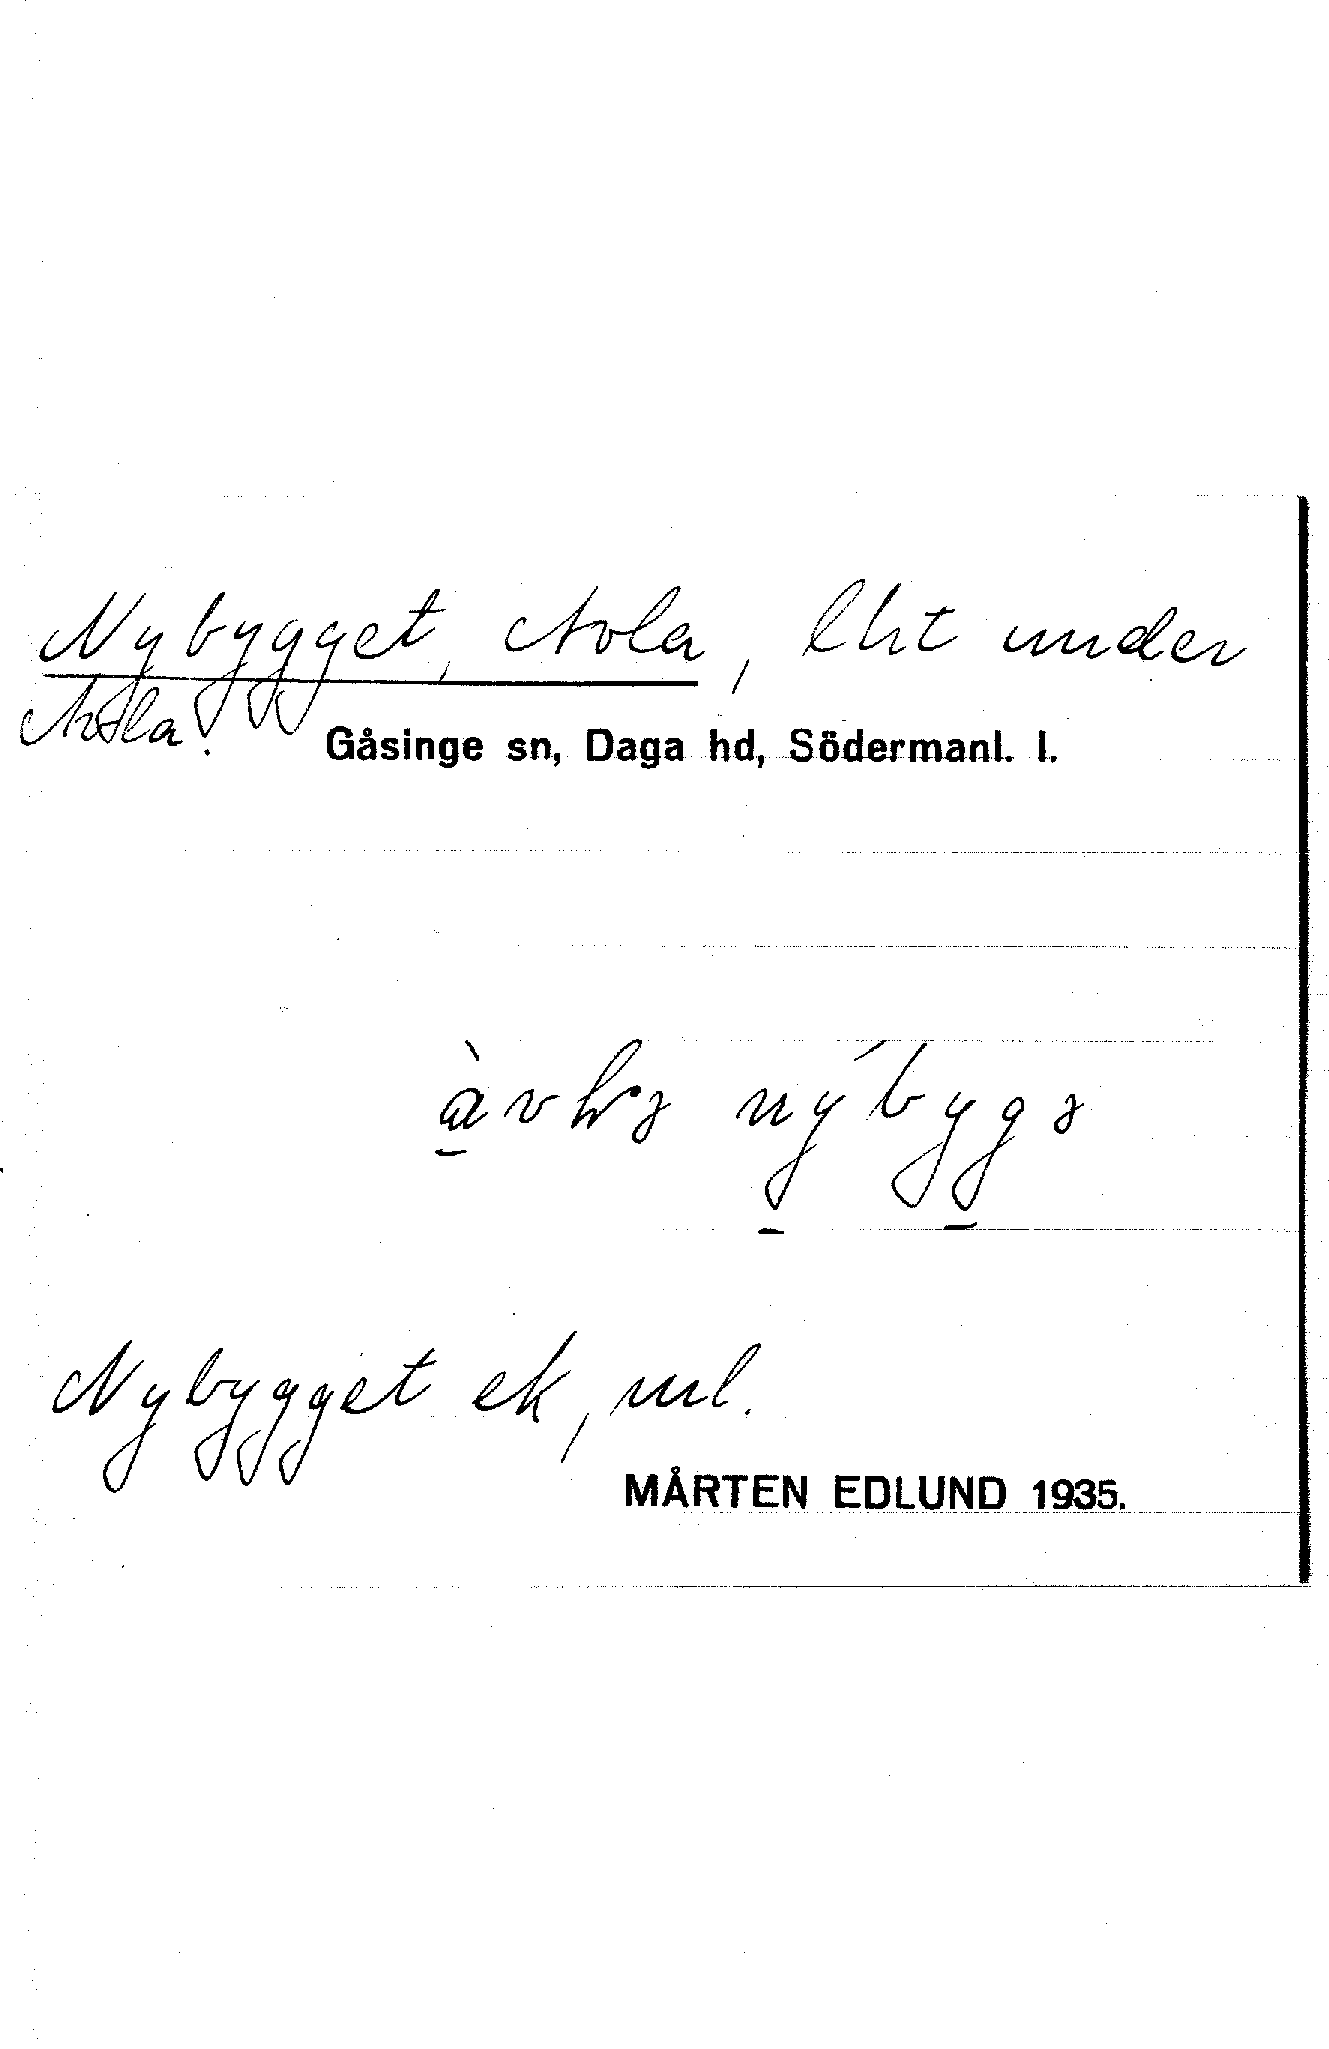 Nybygget, Nola, lht under
Nola.
Gåsinge sn, Daga hd, Södermanl. l.
nýbygə
Nybygget ek, ml.
MÅRTEN EDLUND 1935.